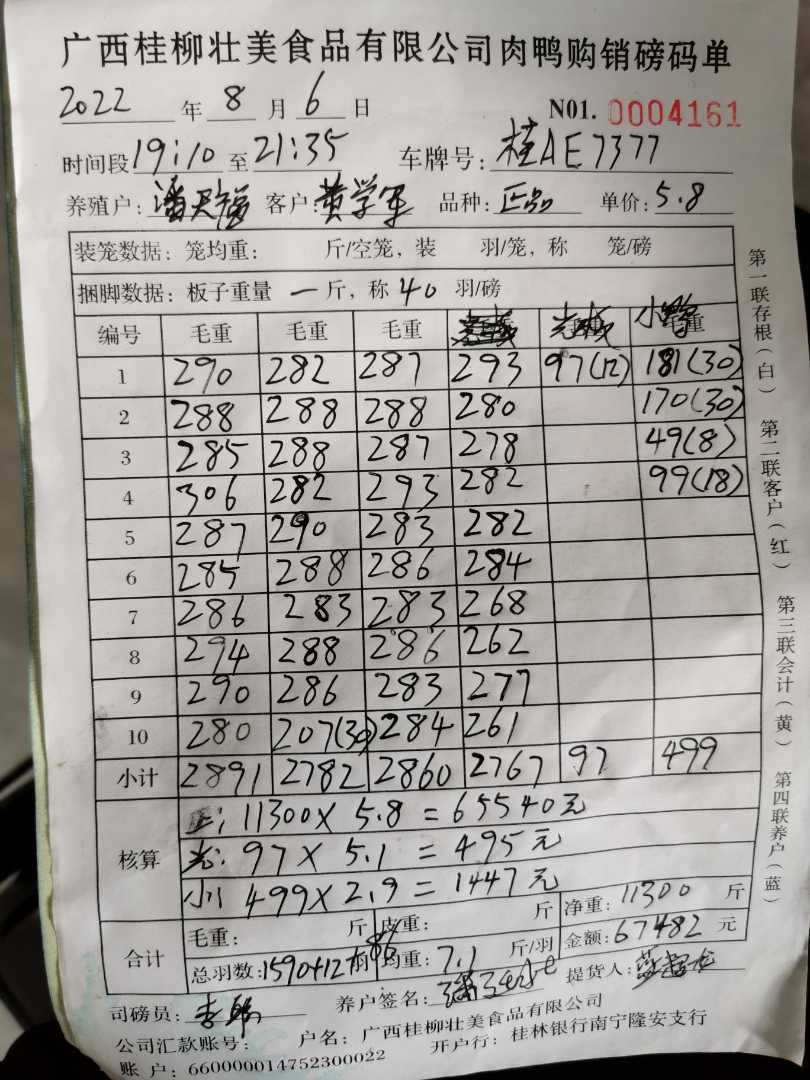 广西桂柳壮美食品有限公司肉鸭购销磅码单
2022 年 8 月 6 日 N01. 0004161
时间段 19:10 至 21:35 车牌号: 桂AE7377
养殖户: 潘天福 客户: 黄学军 品种: 正品 单价: 5.8
装笼数据: 笼均重: 斤/空笼, 装 羽/笼, 称 笼/磅
捆脚数据: 板子重量 一 斤, 称 40 羽/磅
编号 毛重 毛重 毛重 小鸭
1 290 282 287 293 97(12) 181(30)
2 288 288 288 280 170(30)
3 285 288 287 278 49(8)
4 306 282 293 282 99(18)
5 287 290 283 282
6 285 288 286 284
7 286 283 283 268
8 294 288 286 262
9 290 286 283 277
10 280 207(30) 284 261
小计 2891 2782 2860 2767 97 499
核算
正: 11300X 5.8 = 65540元
光: 97 X 5.1 = 495元
小: 499X 2.9 = 1447元
合计
毛重: 斤 皮重: 斤 净重: 11300 斤
总羽数: 1590+12+86 羽 均重: 7.1 斤/羽 金额: 67482 元
司磅员: 养户签名: 提货人:
公司汇款账号: 户名: 广西桂柳壮美食品有限公司
账户: 660000014752300022 开户行: 桂林银行南宁隆安支行
第一联存根(白) 第二联客户(红) 第三联会计(黄) 第四联养户(蓝)